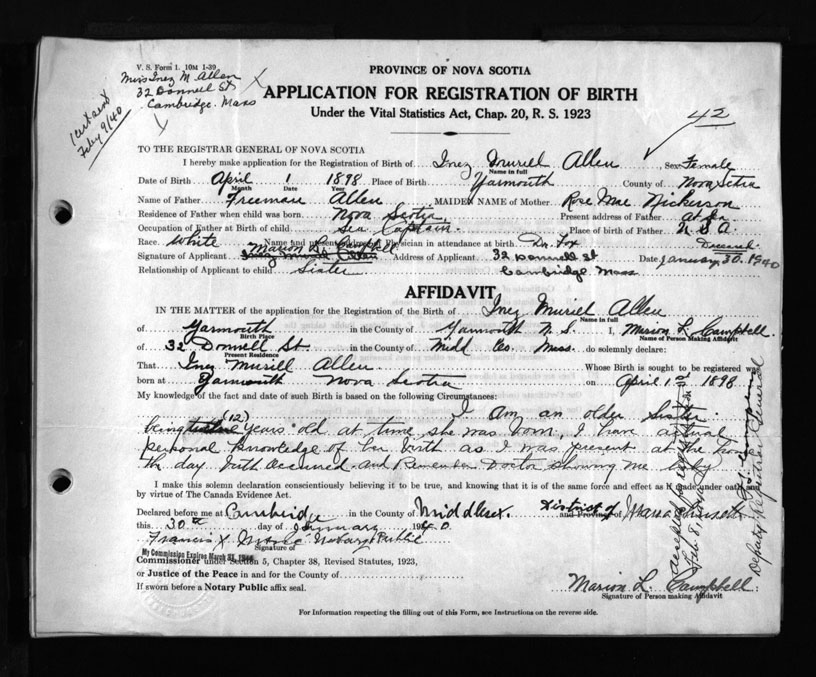 V. S. Form 1. 10M 1-39
Miss Inez M. Allen
32 Donnell St
Cambridge. Mass
Feby 9/40
PROVINCE OF NOVA SCOTIA
APPLICATION FOR REGISTRATION OF BIRTH
Under the Vital Statistics Act, Chap. 20, R. S. 1923
42
TO THE REGISTRAR GENERAL OF NOVA SCOTIA
I hereby make application for the Registration of Birth of Inez Muriel Allen Sex Female
Name in full
Date of Birth April 1 1898 Place of Birth Yarmouth County of Nova Scotia
Month Date Year
Name of Father Freeman Allen MAIDEN NAME of Mother Rose Mae Nickerson
Residence of Father when child was born Nova Scotia Present address of Father
Occupation of Father at Birth of child Sea Captain Place of birth of Father U.S.A.
Deceased
Race White Name and present address of Physician in attendance at birth Dr. Fox
Marion L. Campbell
Signature of Applicant Inez Muriel Allen Address of Applicant 32 Donnell St Date January 30. 1940
Relationship of Applicant to child Sister Cambridge Mass
AFFIDAVIT
IN THE MATTER of the application for the Registration of the Birth of Inez Muriel Allen
Name in full
of Yarmouth in the County of Yarmouth N. S. I, Marion L. Campbell
Birth Place Name of Person Making Affidavit
of 32 Donnell St. in the County of Midd Co. Mass. do solemnly declare:
Present Residence
That Inez Muriel Allen Whose Birth is sought to be registered was
born at Yarmouth Nova Scotia on April 1st 1898
My knowledge of the fact and date of such Birth is based on the following Circumstances:
I am an older sister
being twelve (12) years old at time she was born, I have actual
personal knowledge of her birth as I was present at the house
the day birth occurred and remember Doctor showing me baby
I make this solemn declaration conscientiously believing it to be true, and knowing that it is of the same force and effect as if made under oath and
by virtue of The Canada Evidence Act.
Declared before me at Cambridge in the County of Middlesex. District of and Province of Massachusetts
this 30th day of January 1940
Francis X. Notary Public
Signature of
My Commission Expires March 31, 
Commissioner under Section 5, Chapter 38, Revised Statutes, 1923,
or Justice of the Peace in and for the County of
If sworn before a Notary Public affix seal.
Marion L. Campbell
Signature of Person making Affidavit
Accepted for registration
Feb. 8, 1940
Deputy Registrar General
For Information respecting the filling out of this Form, see Instructions on the reverse side.